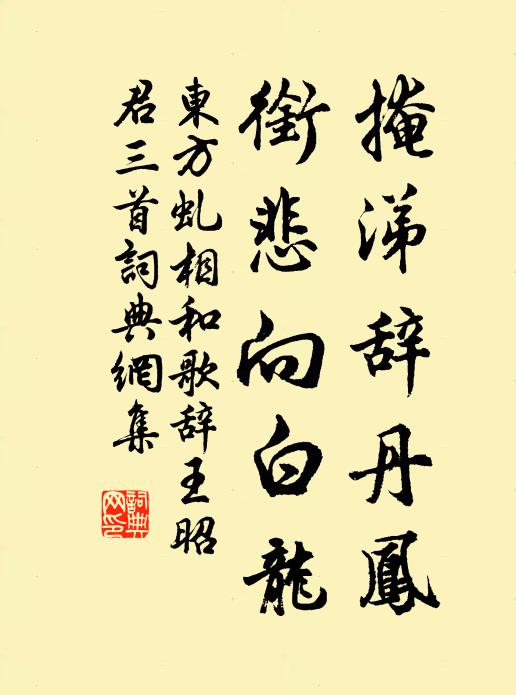 掩涕辞丹鳳
銜悲向白龍
東方虬相和歌辞王昭
君三首詞典網集
詞典
网印